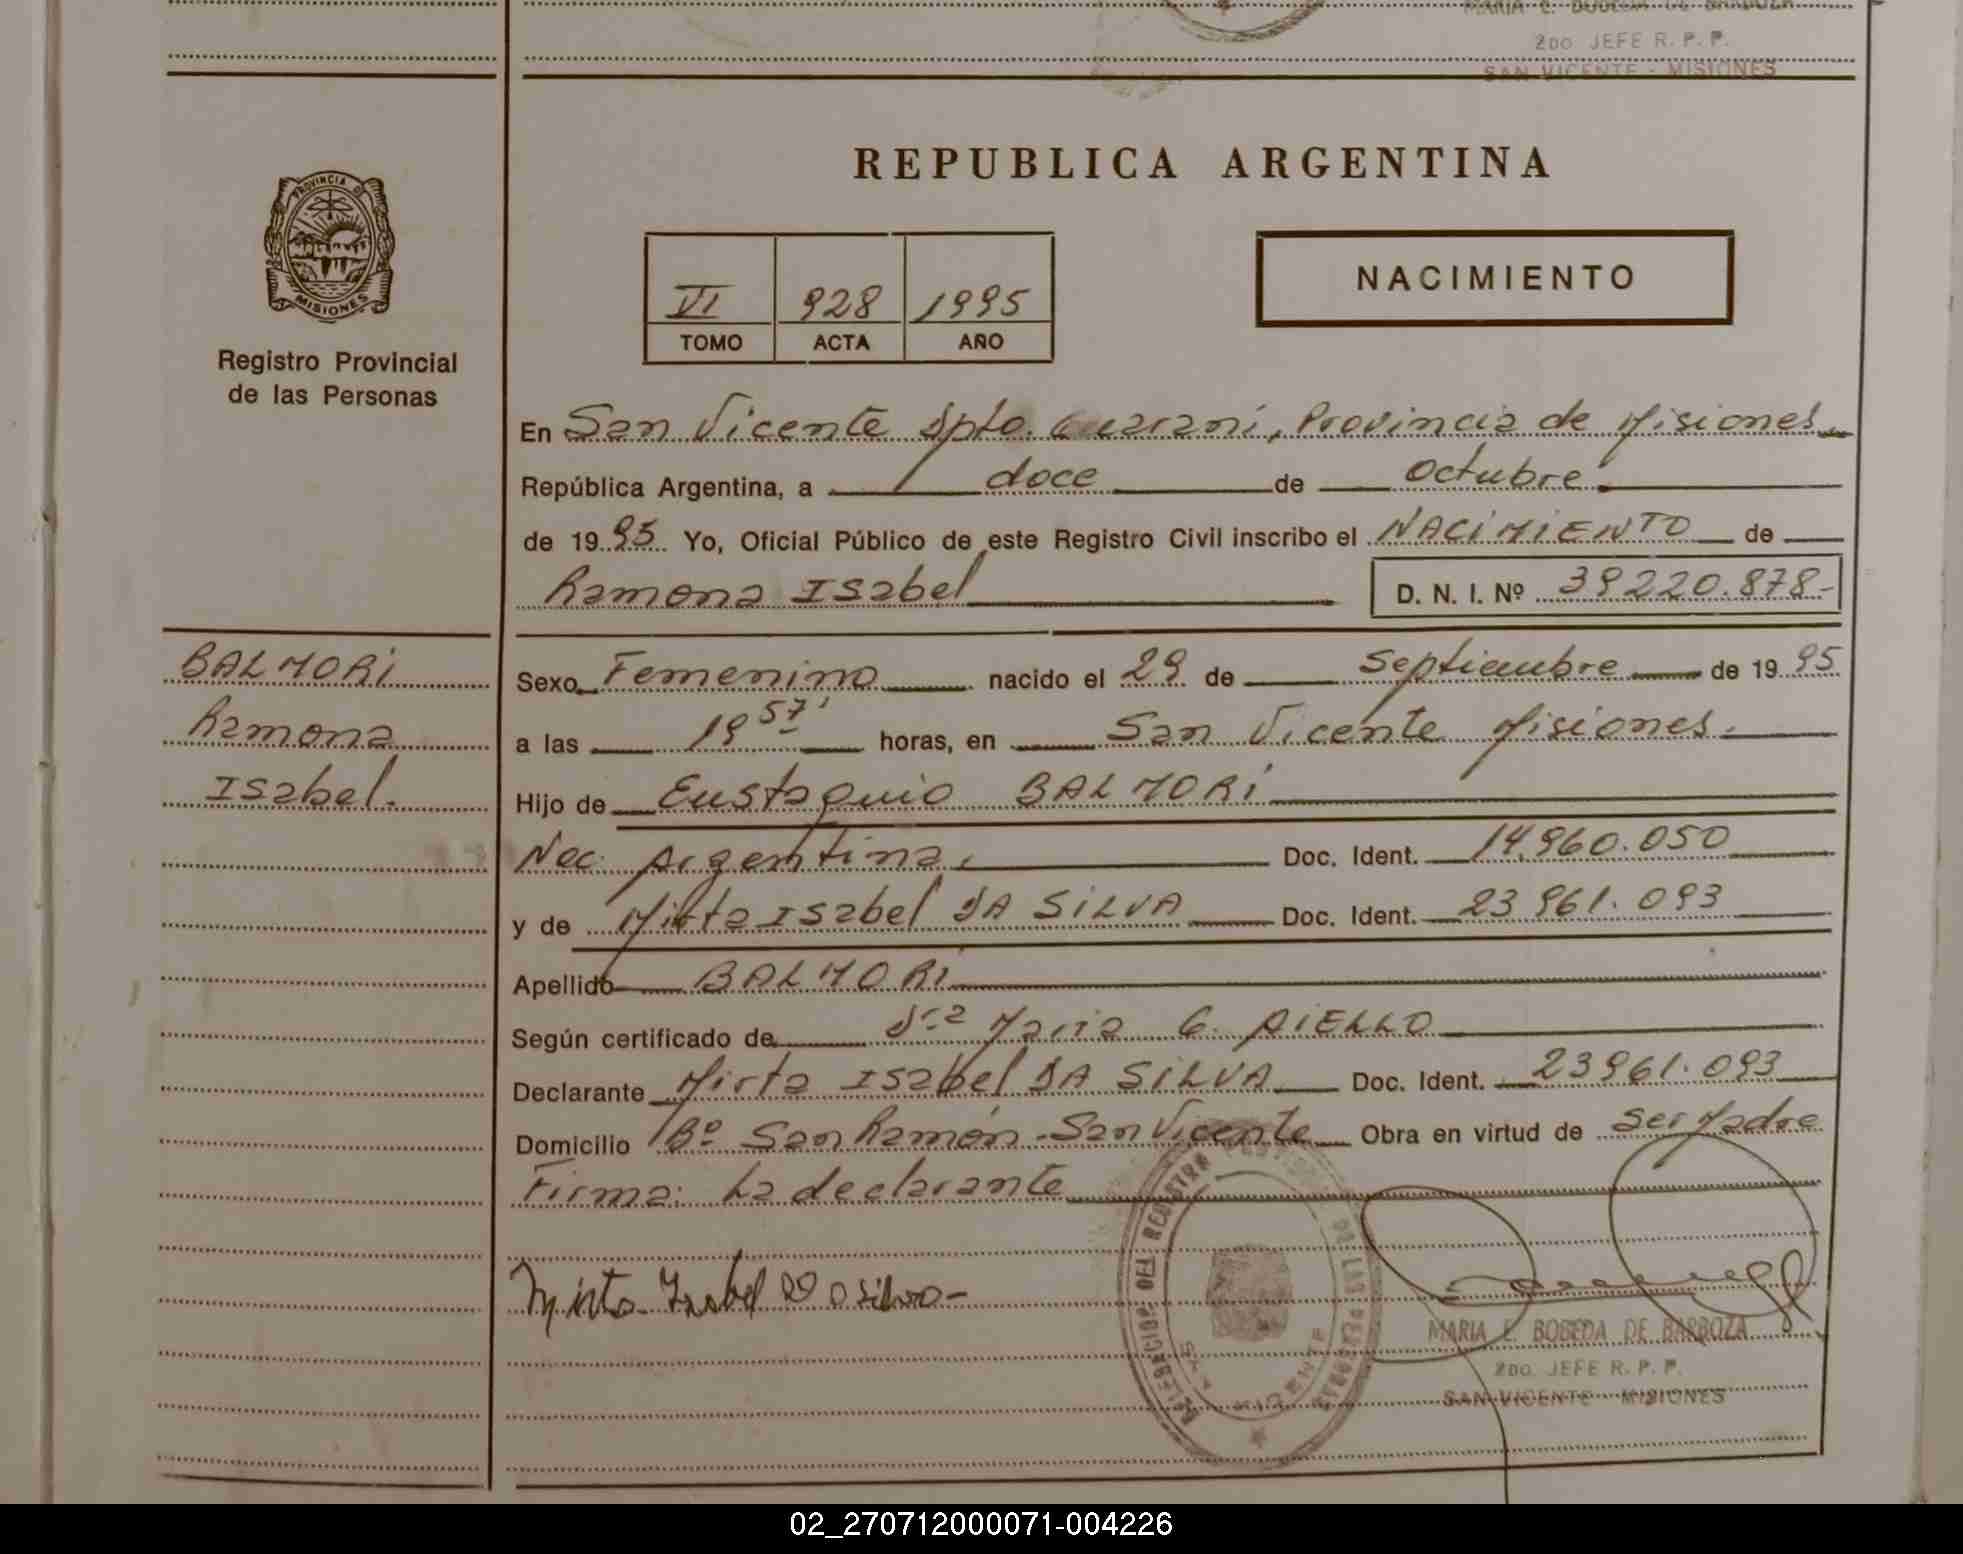 MARIA E. BOBEDA DE BARBOZA
2DO JEFE R. P. P.
SAN VICENTE - MISIONES
REPUBLICA ARGENTINA
PROVINCIA DE
MISIONES
Registro Provincial
de las Personas
VI 928 1995
TOMO ACTA AÑO
NACIMIENTO
En San Vicente Dpto. Guaraní, Provincia de Misiones
República Argentina, a doce de octubre
de 1995 Yo, Oficial Público de este Registro Civil inscribo el NACIMIENTO de
Ramona Isabel D. N. I. Nº 39220.878-
BALMORI
Ramona
Isabel.
Sexo Femenino nacido el 29 de septiembre de 1995
a las 19 57' horas, en San Vicente Misiones.
Hijo de Eustaquio BALMORI
Nac. Argentina. Doc. Ident. 14.960.050
y de Mirta Isabel DA SILVA Doc. Ident. 23961.093
Apellido BALMORI
Según certificado de Dra Maria G. AIELLO
Declarante Mirta Isabel DA SILVA Doc. Ident. 23961.093
Domicilio Bº San Ramón - San Vicente Obra en virtud de ser Madre
Firma: La declarante
Mirta Isabel Da silva-
DELEGACION DEL REGISTRO PROVINCIAL DE LAS PERSONAS
SAN VICENTE
MARIA E. BOBEDA DE BARBOZA
2DO. JEFE R. P. P.
SAN VICENTE - MISIONES
02_270712000071-004226